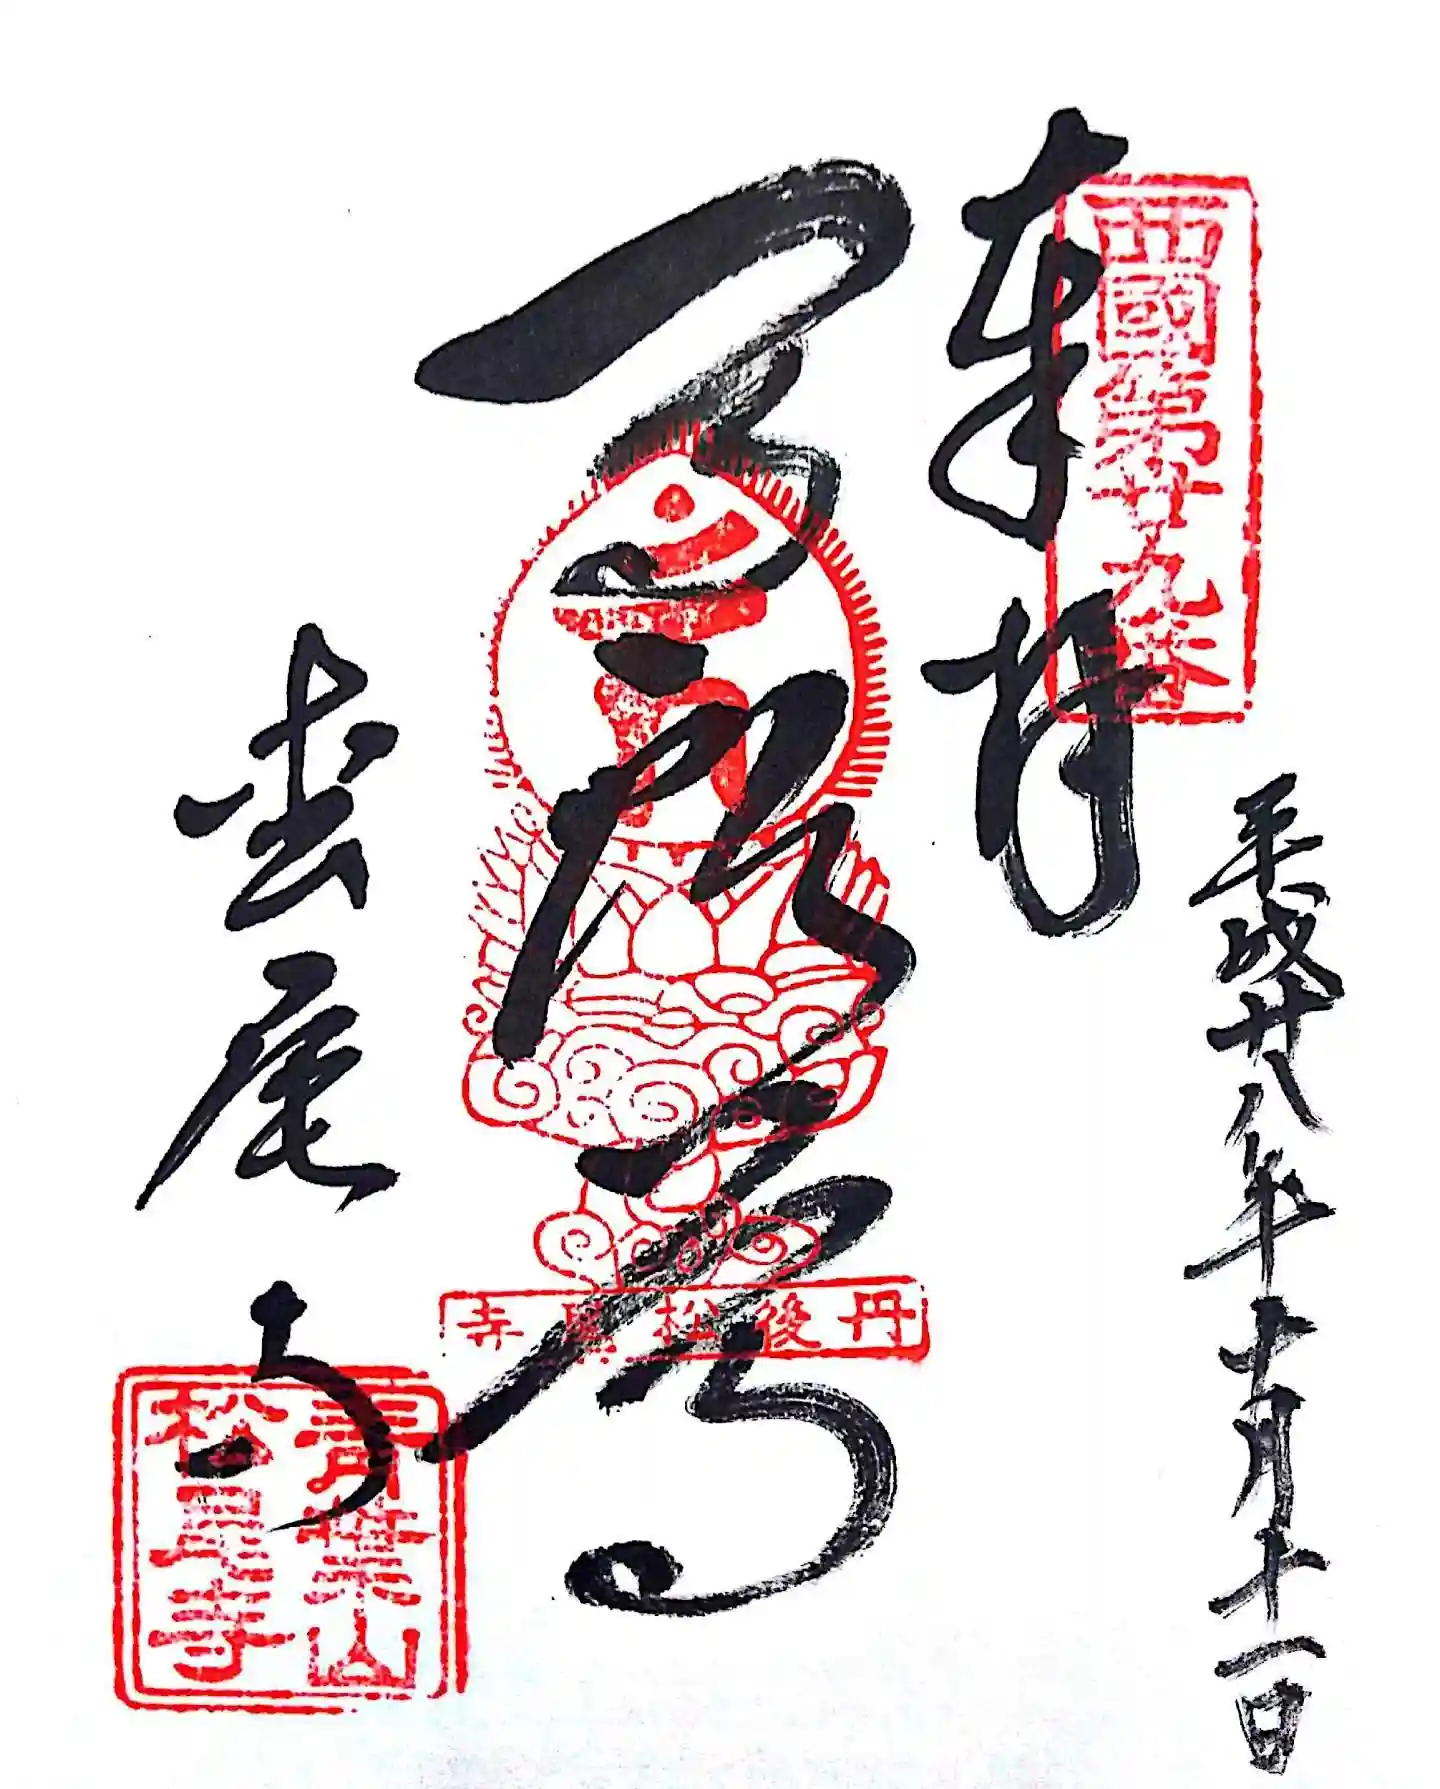 平成廿八年十月十一日
西國第廿九番
奉拝
馬頭尊
丹後松尾寺
枩尾寺
青葉山
松尾寺